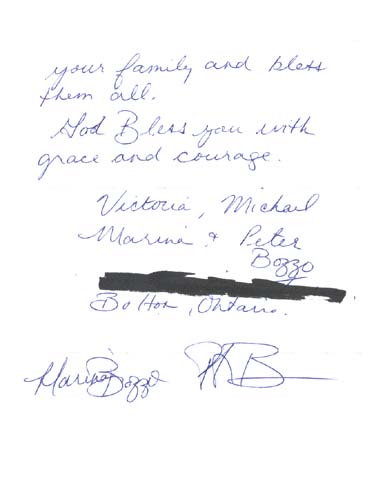 your family and bless
them all.
God Bless you with
grace and courage.
Victoria, Michael
Marina & Peter
Bozzo
Bolton, Ontario.
Marina Bozzo